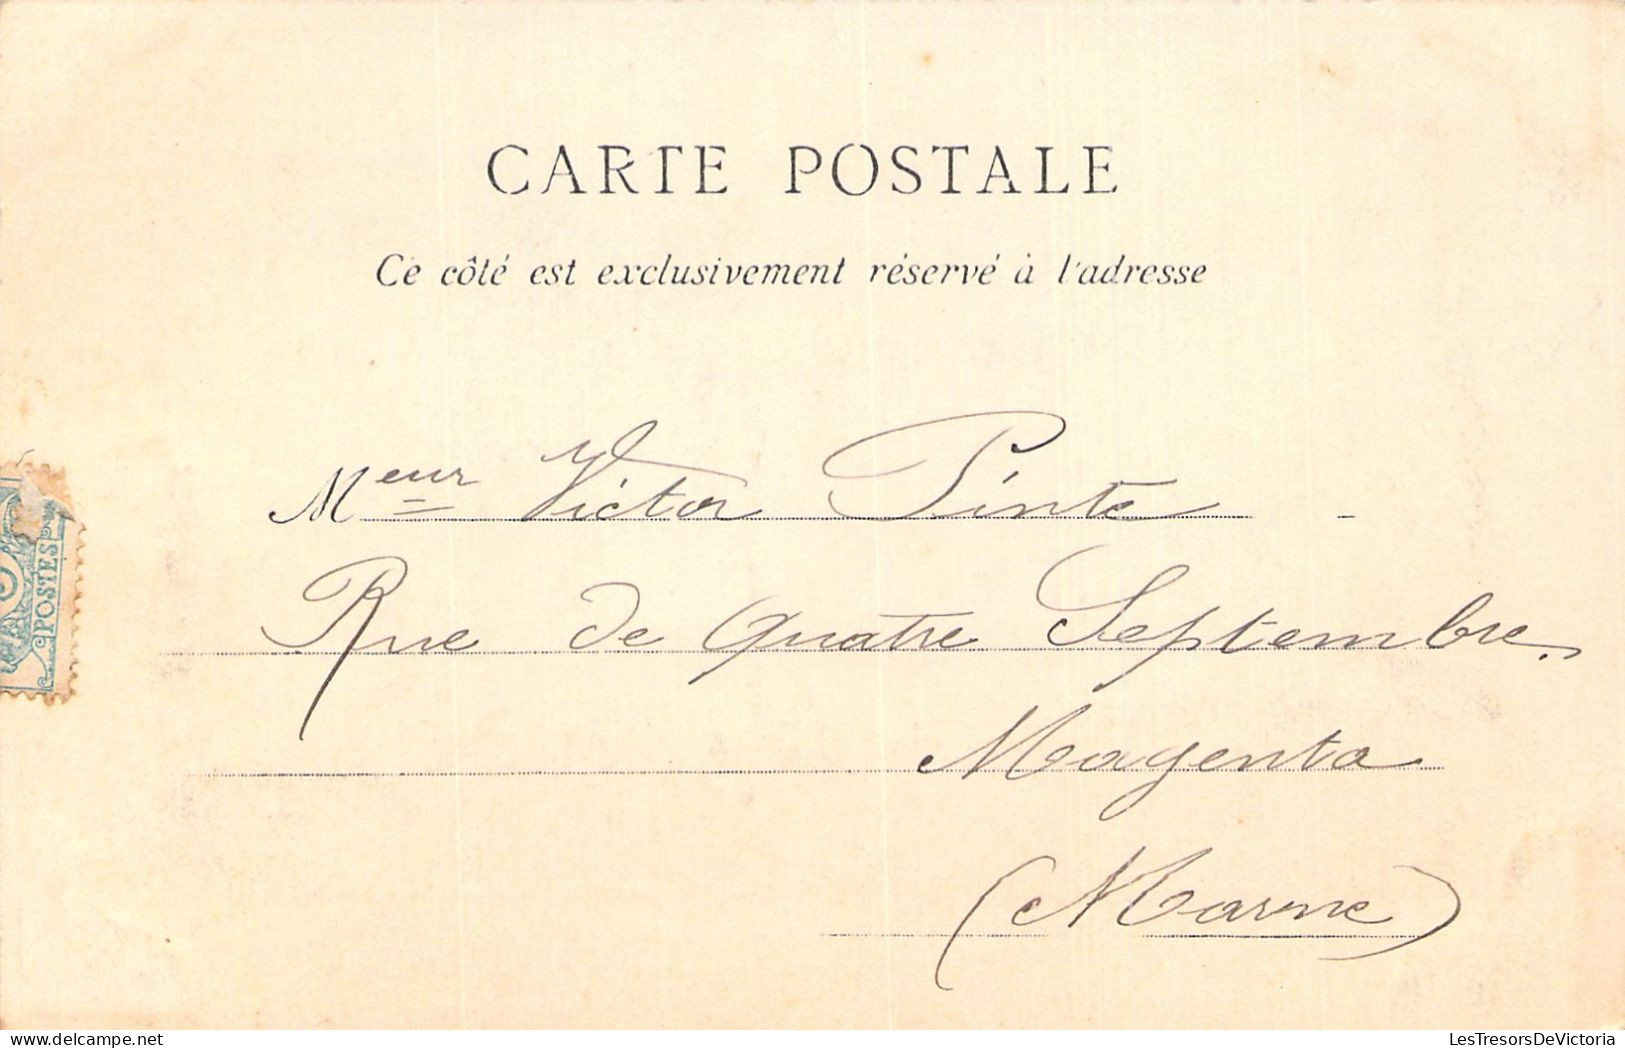 CARTE POSTALE
Ce côté est exclusivement réservé à l'adresse
Meur Victor Pinte
Rue de Quatre Septembre.
Magenta
(Marne)
POSTES
LesTresorsDeVictoria